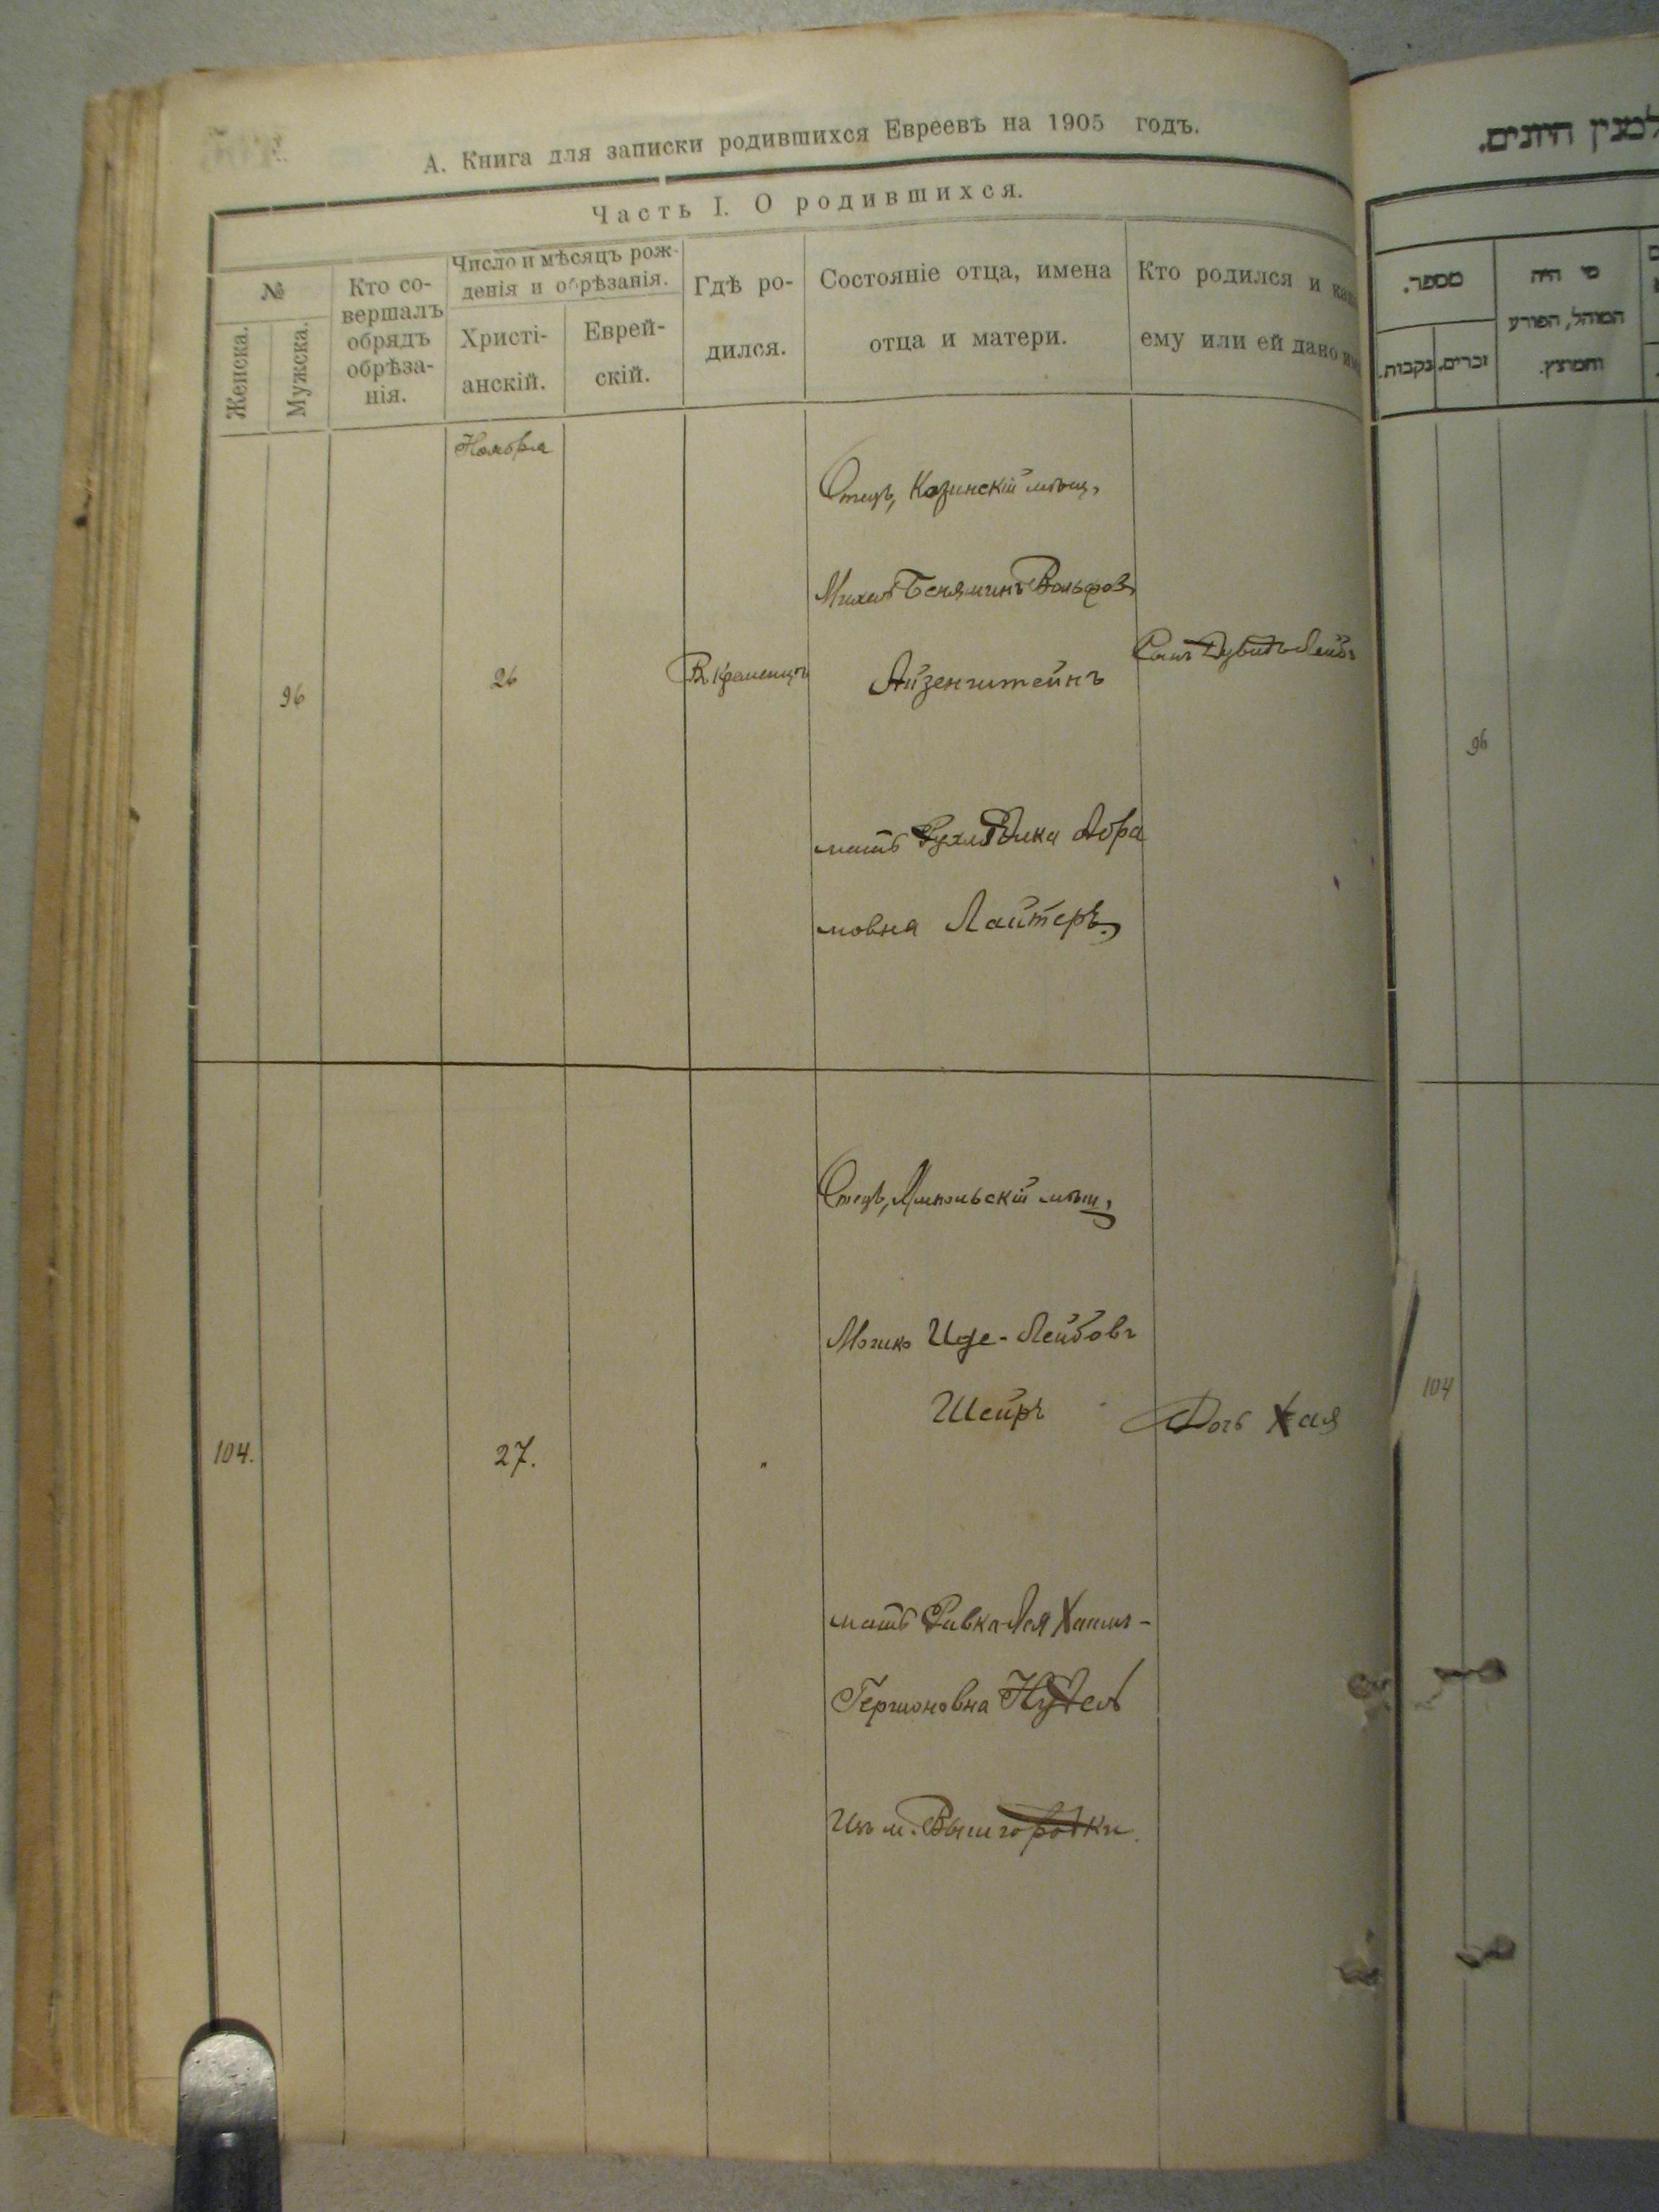 А. Книга для записки родившихся Евреевъ на 1905 годъ.
Часть I. О родившихся.
№
Женска.
Мужска.
Кто со-
вершалъ
обрядъ
обрѣза-
нія.
Число и мѣсяцъ рож-
денія и обрѣзанія.
Христі-
анскій.
Еврей-
скій.
Гдѣ ро-
дился.
Состояніе отца, имена
отца и матери.
Кто родился и
ему или ей дано
Ноября
96
26
Въ Кременцѣ
Отецъ, Козинскій мѣщ.
Михель Беняминъ Вольфов
Айзенштейнъ
мать Рухля Абра
мовна Лайтеръ
Сынъ Дувидъ Лейбъ
104.
27.
"
Отецъ, Ямпольскій мѣщ.
Мошко Иде-Лейбовъ
Шейръ
мать Ривка-Лея Хаимъ-
Гершоновна Нудель
Изъ м. Вышгородки.
Дочь Хая
למנין היונים.
מספר.
נקבות.
זכרים.
מי היה
המוהל, הפורע
והמוצץ.
96
104